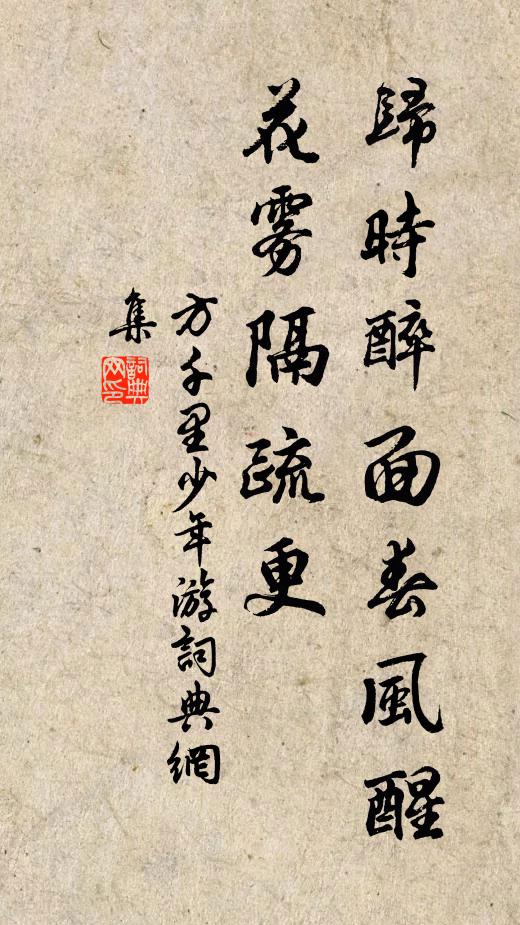 歸時醉面春風醒
花雾隔疏更
方千里少年游詞典網
集
詞典網印